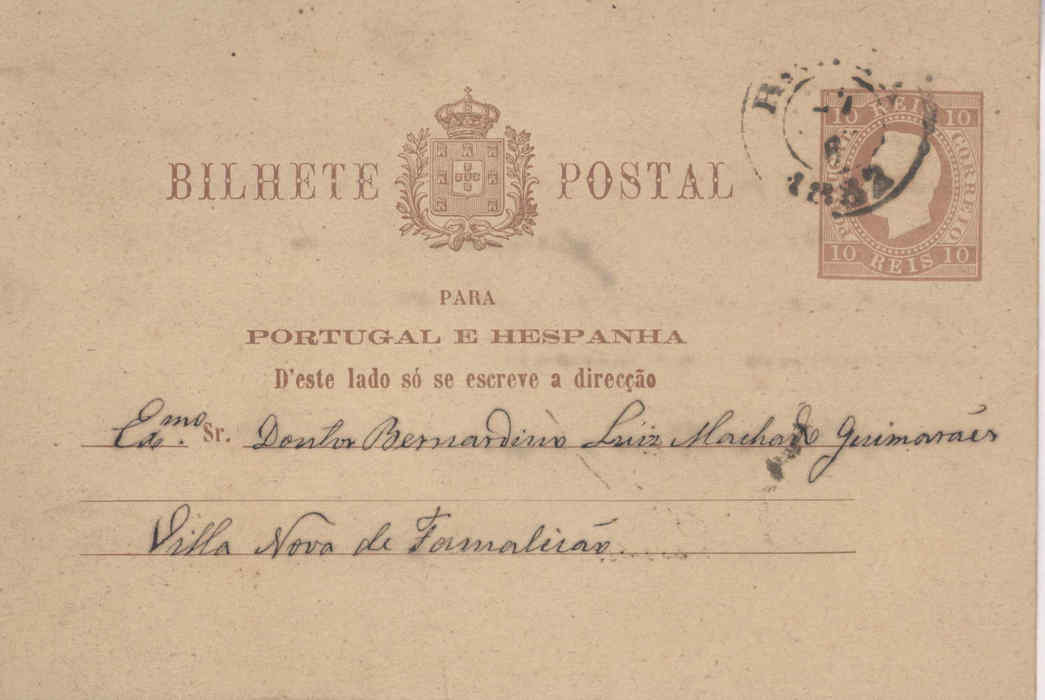 BILHETE POSTAL
10 REIS 10
CORREIO
10 REIS 10
1882
PARA
PORTUGAL E HESPANHA
D'este lado só se escreve a direcção
Exmo. Sr. Doutor Bernardino Luiz Machado Guimarães
Villa Nova de Famalicão.